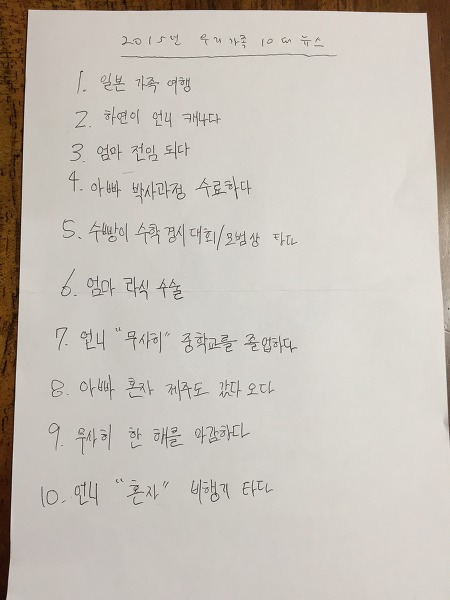 2015년 우리가족 10대 뉴스
1. 일본 가족 여행
2. 하연이 언니 캐나다
3. 엄마 전임 되다
4. 아빠 박사과정 수료하다
5. 수빵이 수학경시대회/모범상 타다
6. 엄마 라식 수술
7. 언니 "무사히" 중학교를 졸업하다
8. 아빠 혼자 제주도 갔다 오다
9. 무사히 한 해를 마감하다
10. 언니 "혼자" 비행기 타다